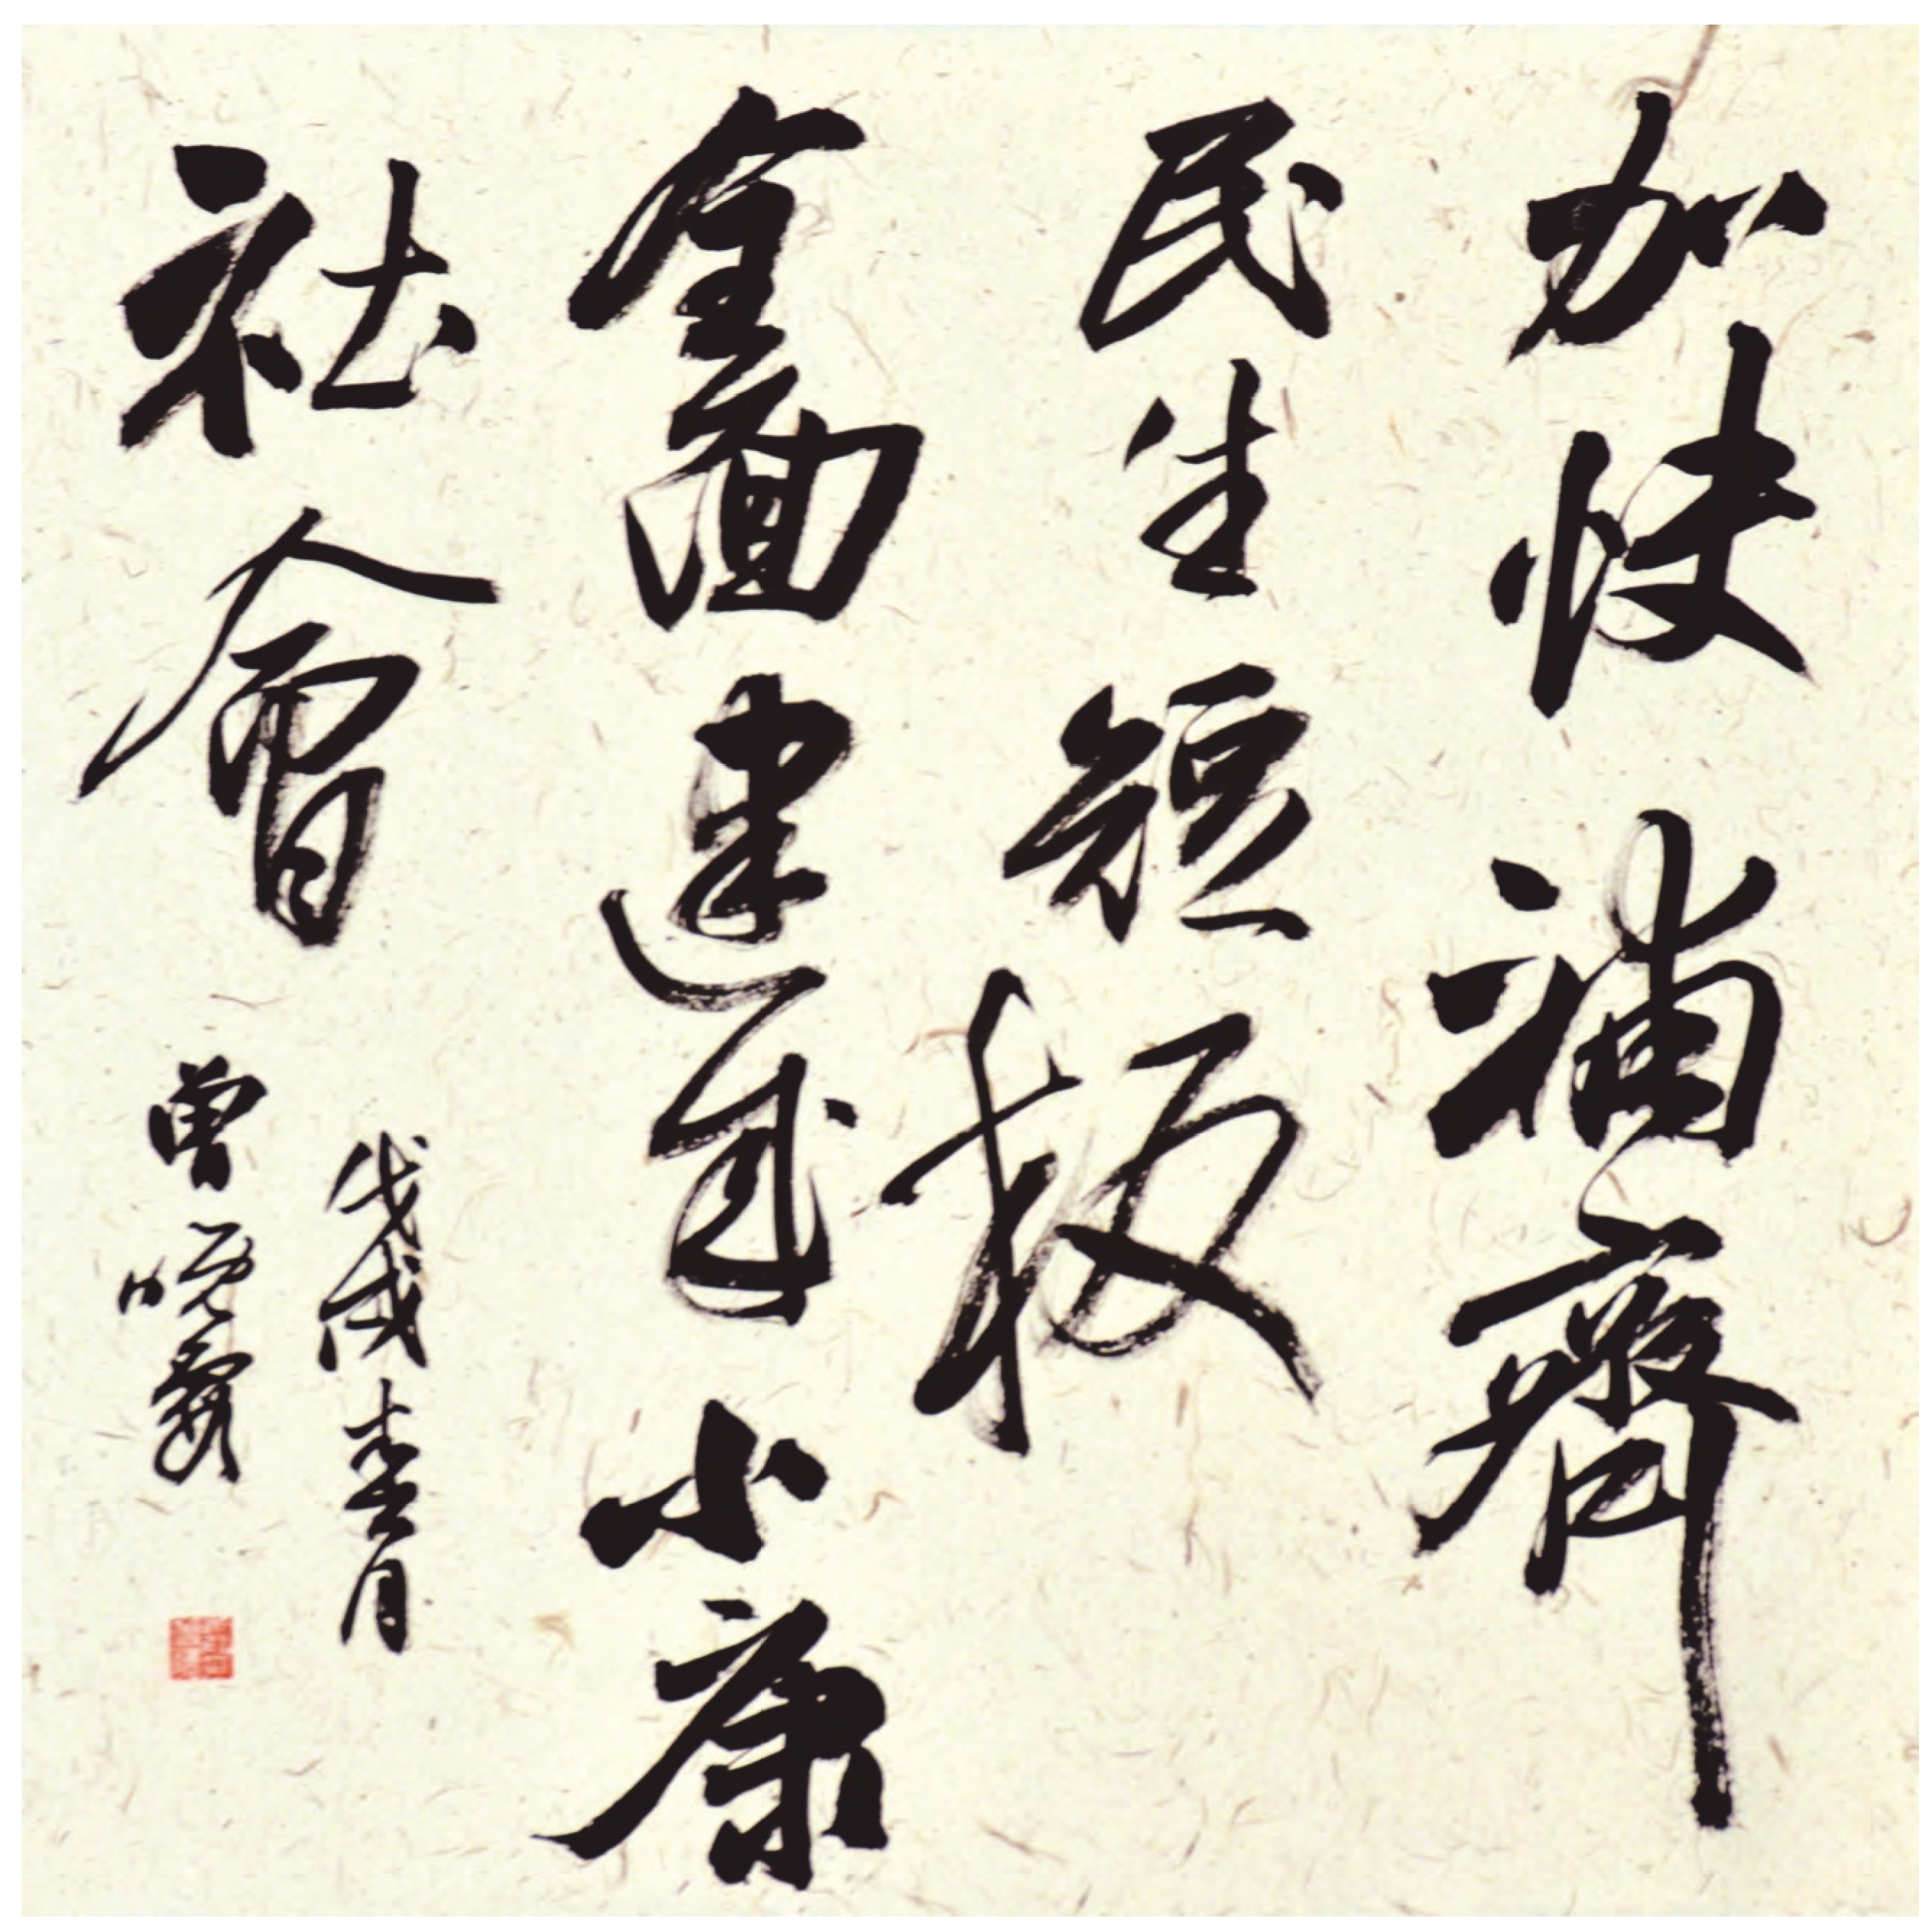 加快補齊
民生短板
全面建成小康
社會
戊戌春月
曾晚霞